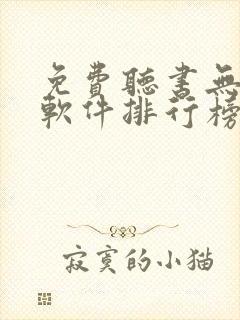 免費聽書無
軟件排行榜
寂寞的小猫